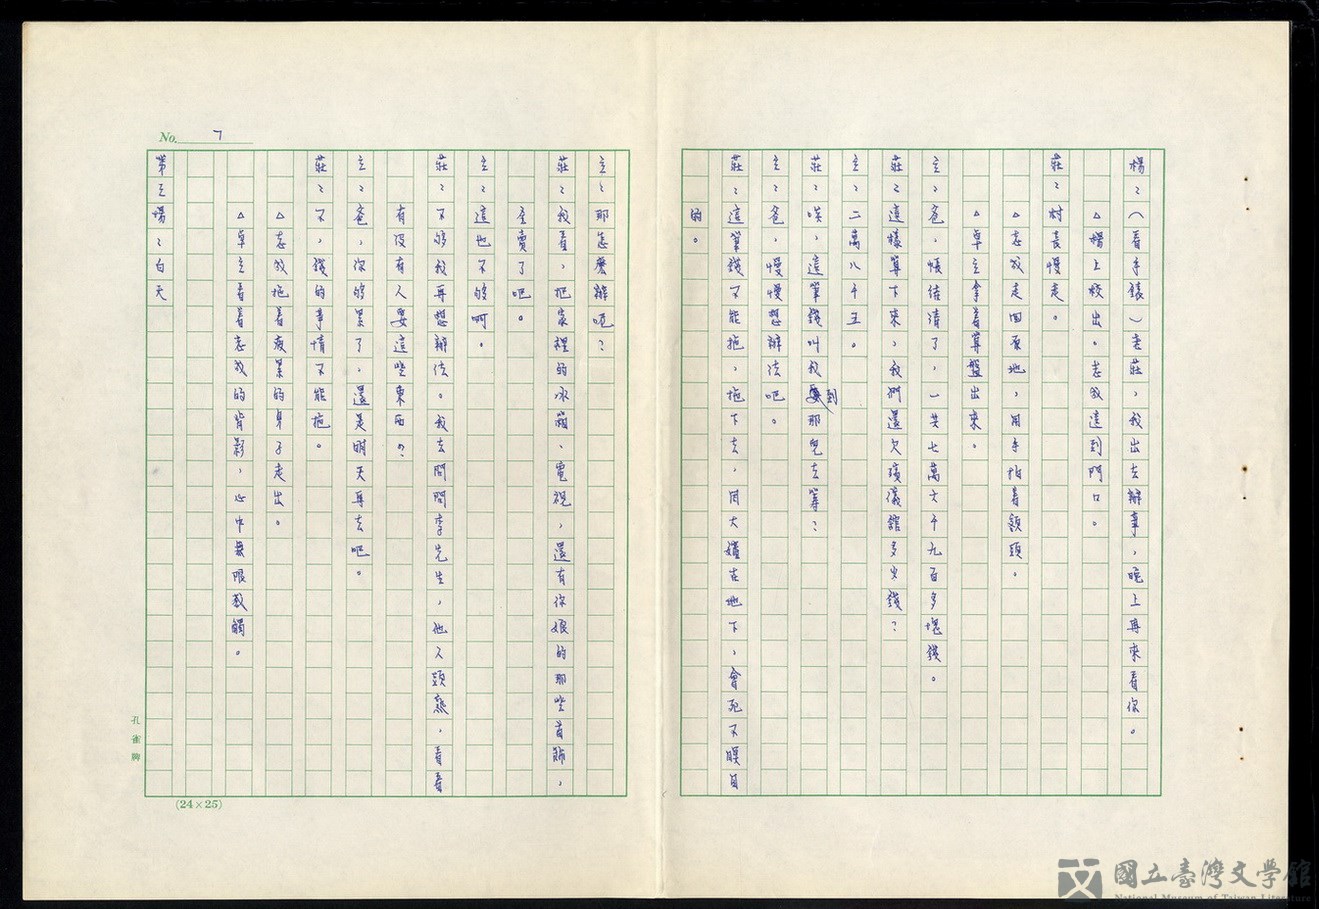 楊：（看手錶）老莊，我出去辦事，晚上再來看你。
△楊上校出。志成送到門口。
莊：村長慢走。
△志成走回原地，用手拍着額頭。
△卓立拿着算盤出來。
立：爸，帳結清了，一共七萬六千九百多塊錢。
莊：這樣算下來，我們還欠殯儀館多少錢？
立：二萬八千五。
莊：唉，這筆錢叫我到那兒去籌？
立：爸，慢慢想辦法吧。
莊：這筆錢不能拖，拖下去，周大嬸在地下，會死不瞑目
的。
立：那怎麼辦呢？
莊：我看，把家裡的冰箱、電視，還有你娘的那些首飾，
全賣了吧。
立：這也不够啊。
莊：不够我再想辦法。我去問問李先生，他人頭熟，看看
有沒有人要這些東西？
立：爸，你够累了，還是明天再去吧。
莊：不，錢的事情不能拖。
△志成拖着疲累的身子走出。
△卓立看着志成的背影，心中無限感觸。
第三場：白天
No. 7
(24×25)
孔雀牌
國立臺灣文學館
National Museum of Taiwan Literature